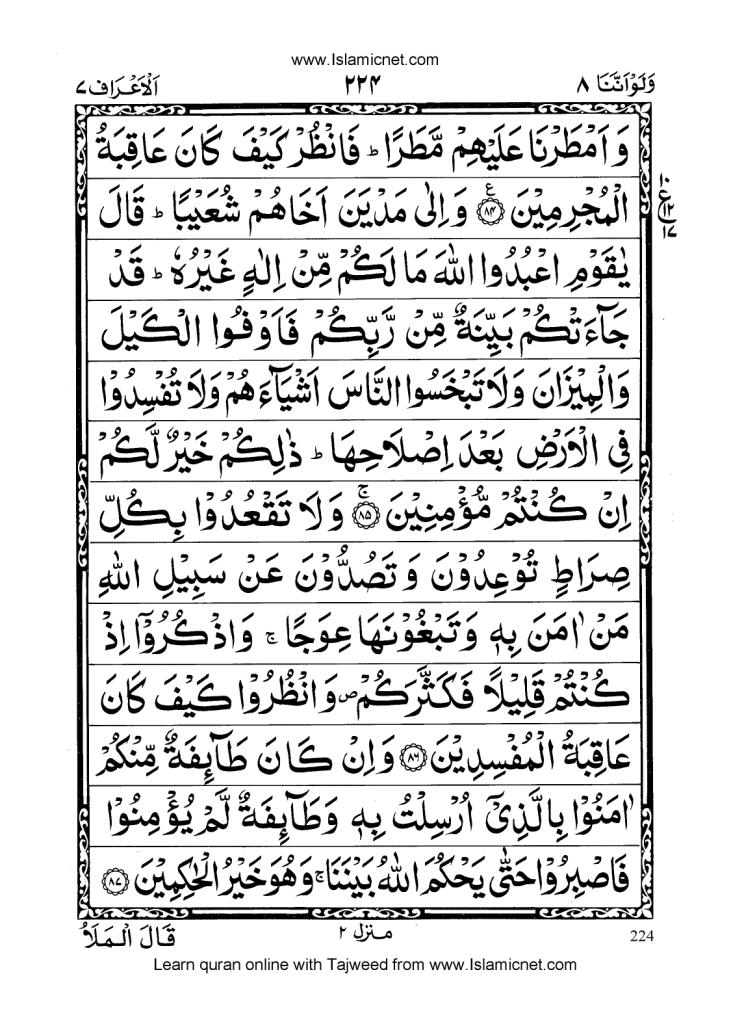 www.Islamicnet.com
وَلَوْاَنَّنَا ۸ ۲۲۴ اَلْاَعْرَاف ۷
وَ اَمْطَرْنَا عَلَيْهِمْ مَّطَرًا ؕ فَانْظُرْ كَيْفَ كَانَ عَاقِبَةُ
الْمُجْرِمِيْنَ ۝۸۴ ع وَ اِلٰى مَدْيَنَ اَخَاهُمْ شُعَيْبًا ؕ قَالَ
۱۰ ع ۱۲ ۱۷
يٰقَوْمِ اعْبُدُوا اللّٰهَ مَا لَكُمْ مِّنْ اِلٰهٍ غَيْرُهٗ ؕ قَدْ
جَآءَتْكُمْ بَيِّنَةٌ مِّنْ رَّبِّكُمْ فَاَوْفُوا الْكَيْلَ
وَالْمِيْزَانَ وَلَا تَبْخَسُوا النَّاسَ اَشْيَآءَهُمْ وَلَا تُفْسِدُوْا
فِي الْاَرْضِ بَعْدَ اِصْلَاحِهَا ؕ ذٰلِكُمْ خَيْرٌ لَّكُمْ
اِنْ كُنْتُمْ مُّؤْمِنِيْنَ ۝۸۵ ۚ وَلَا تَقْعُدُوْا بِكُلِّ
صِرَاطٍ تُوْعِدُوْنَ وَ تَصُدُّوْنَ عَنْ سَبِيْلِ اللّٰهِ
مَنْ اٰمَنَ بِهٖ وَ تَبْغُوْنَهَا عِوَجًا ۚ وَاذْكُرُوْۤا اِذْ
كُنْتُمْ قَلِيْلًا فَكَثَّرَكُمْ ۪ وَانْظُرُوْا كَيْفَ كَانَ
عَاقِبَةُ الْمُفْسِدِيْنَ ۝۸۶ وَاِنْ كَانَ طَآئِفَةٌ مِّنْكُمْ
اٰمَنُوْا بِالَّذِيْۤ اُرْسِلْتُ بِهٖ وَطَآئِفَةٌ لَّمْ يُؤْمِنُوْا
فَاصْبِرُوْا حَتّٰى يَحْكُمَ اللّٰهُ بَيْنَنَا ۚ وَهُوَ خَيْرُ الْحٰكِمِيْنَ ۝۸۷
224 منزل ۲ قَالَ الْمَلَاُ
Learn quran online with Tajweed from www.Islamicnet.com